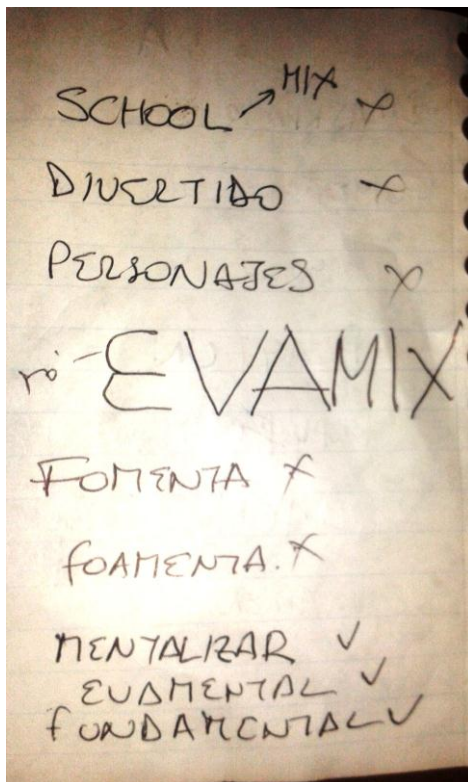 MIX
SCHOOL ↗ x
DIVERTIDO x
PERSONAJES x
EVAMIX
FOMENTA x
FOAMENTA. x
MENTALIZAR ✓
EVAMENTAL ✓
FUNDAMENTAL ✓